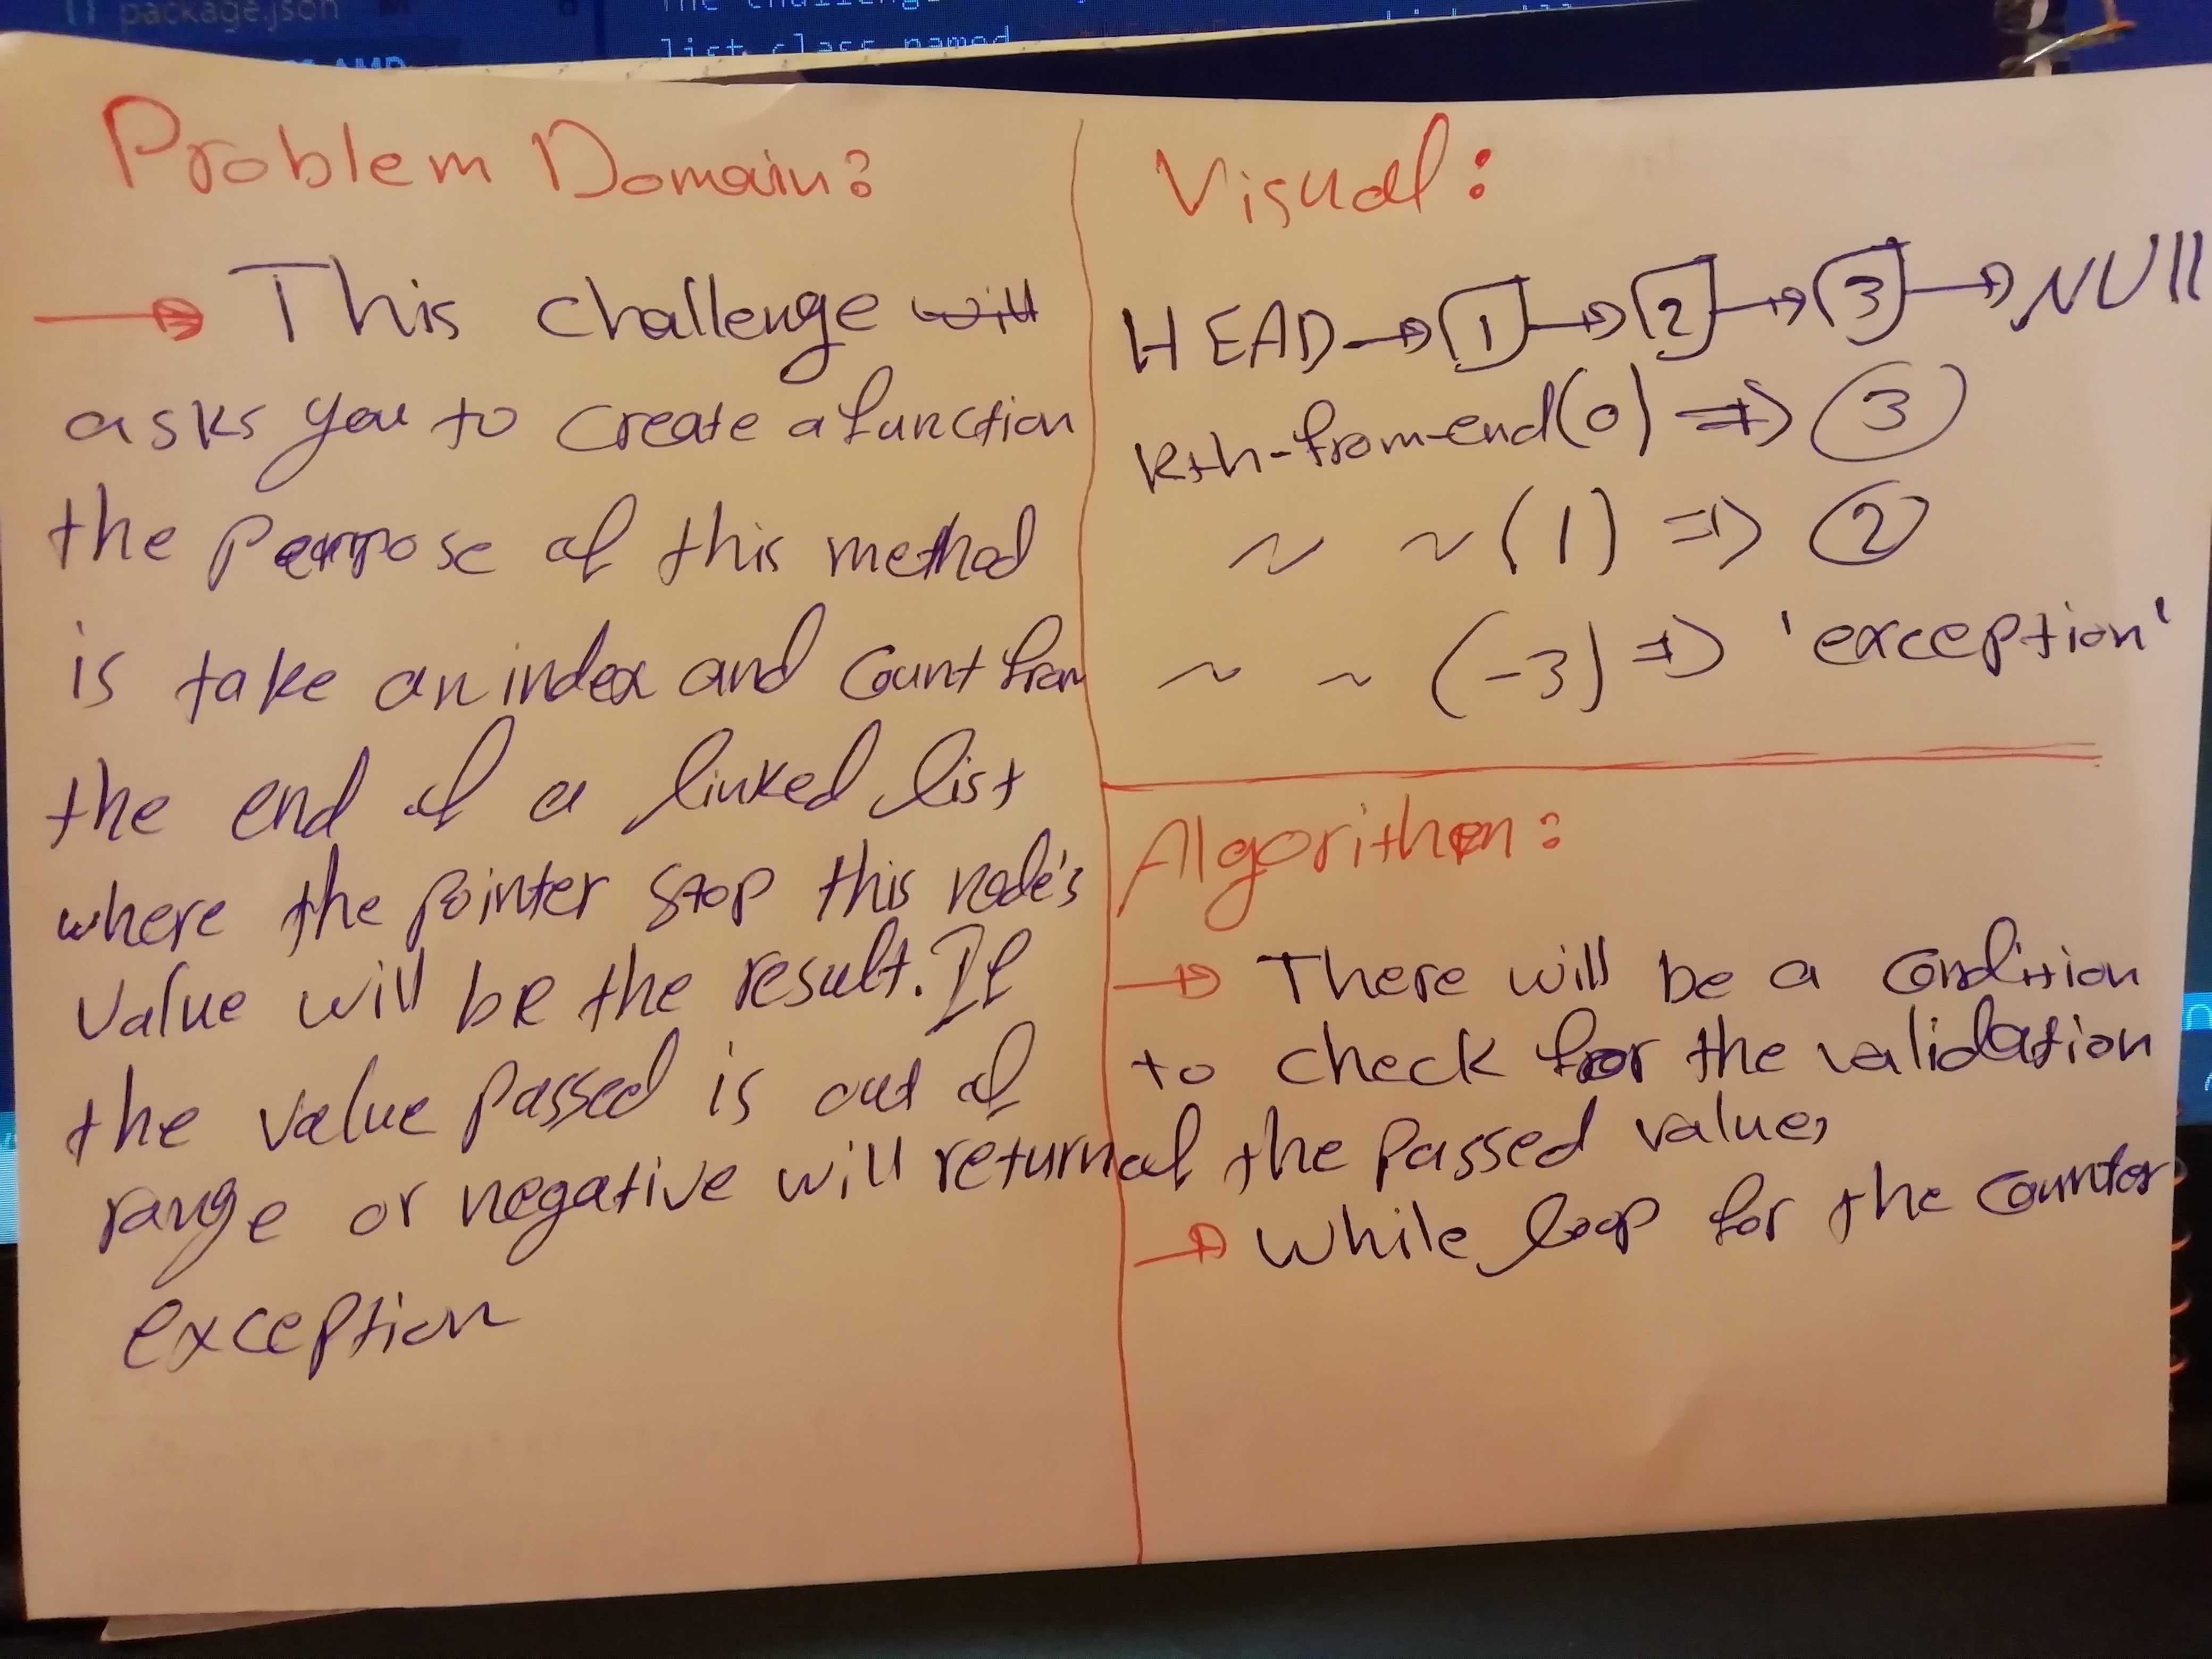 package.json
list class named
Problem Domain:
→ This challenge will
asks you to create a function
the perpose of this method
is take an index and count from
the end of a linked list
where the pointer stop this node's
value will be the result. If
the value passed is out of
range or negative will return
exception
Visual:
HEAD → 1 → 2 → 3 → NUll
kth-from-end(0) => 3
~ ~ (1) => 2
~ ~ (-3) => 'exception'
Algorithm:
→ There will be a condition
to check for the validation
of the passed value,
→ while loop for the counter